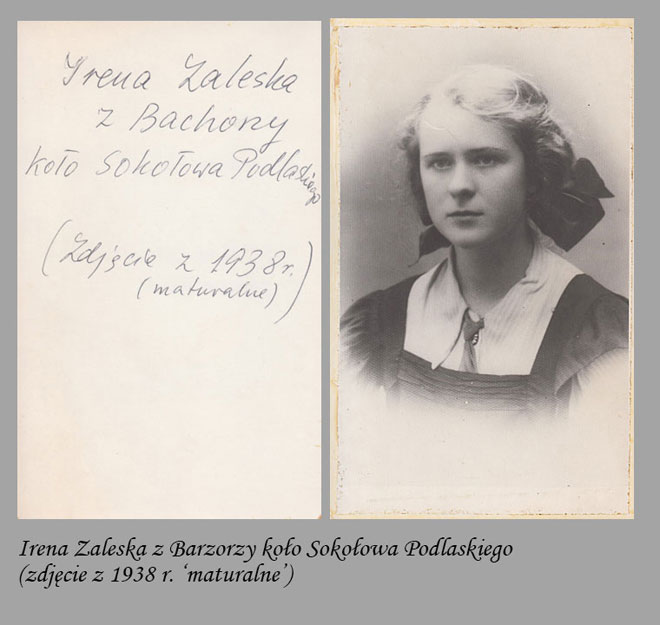 Irena Zaleska
z Bachorzy
koło Sokołowa Podlaskiego
(Zdjęcie z 1938r.
(maturalne))
Irena Zaleska z Barzorzy koło Sokołowa Podlaskiego
(zdjęcie z 1938 r. ‘maturalne’)